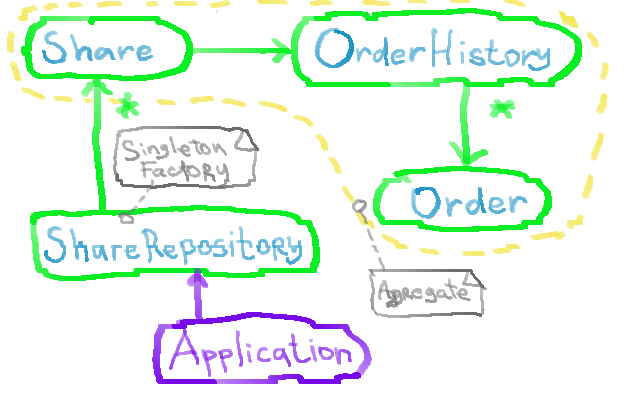 Share
OrderHistory
*
*
Singleton
Factory
Order
ShareRepository
Agregate
Application